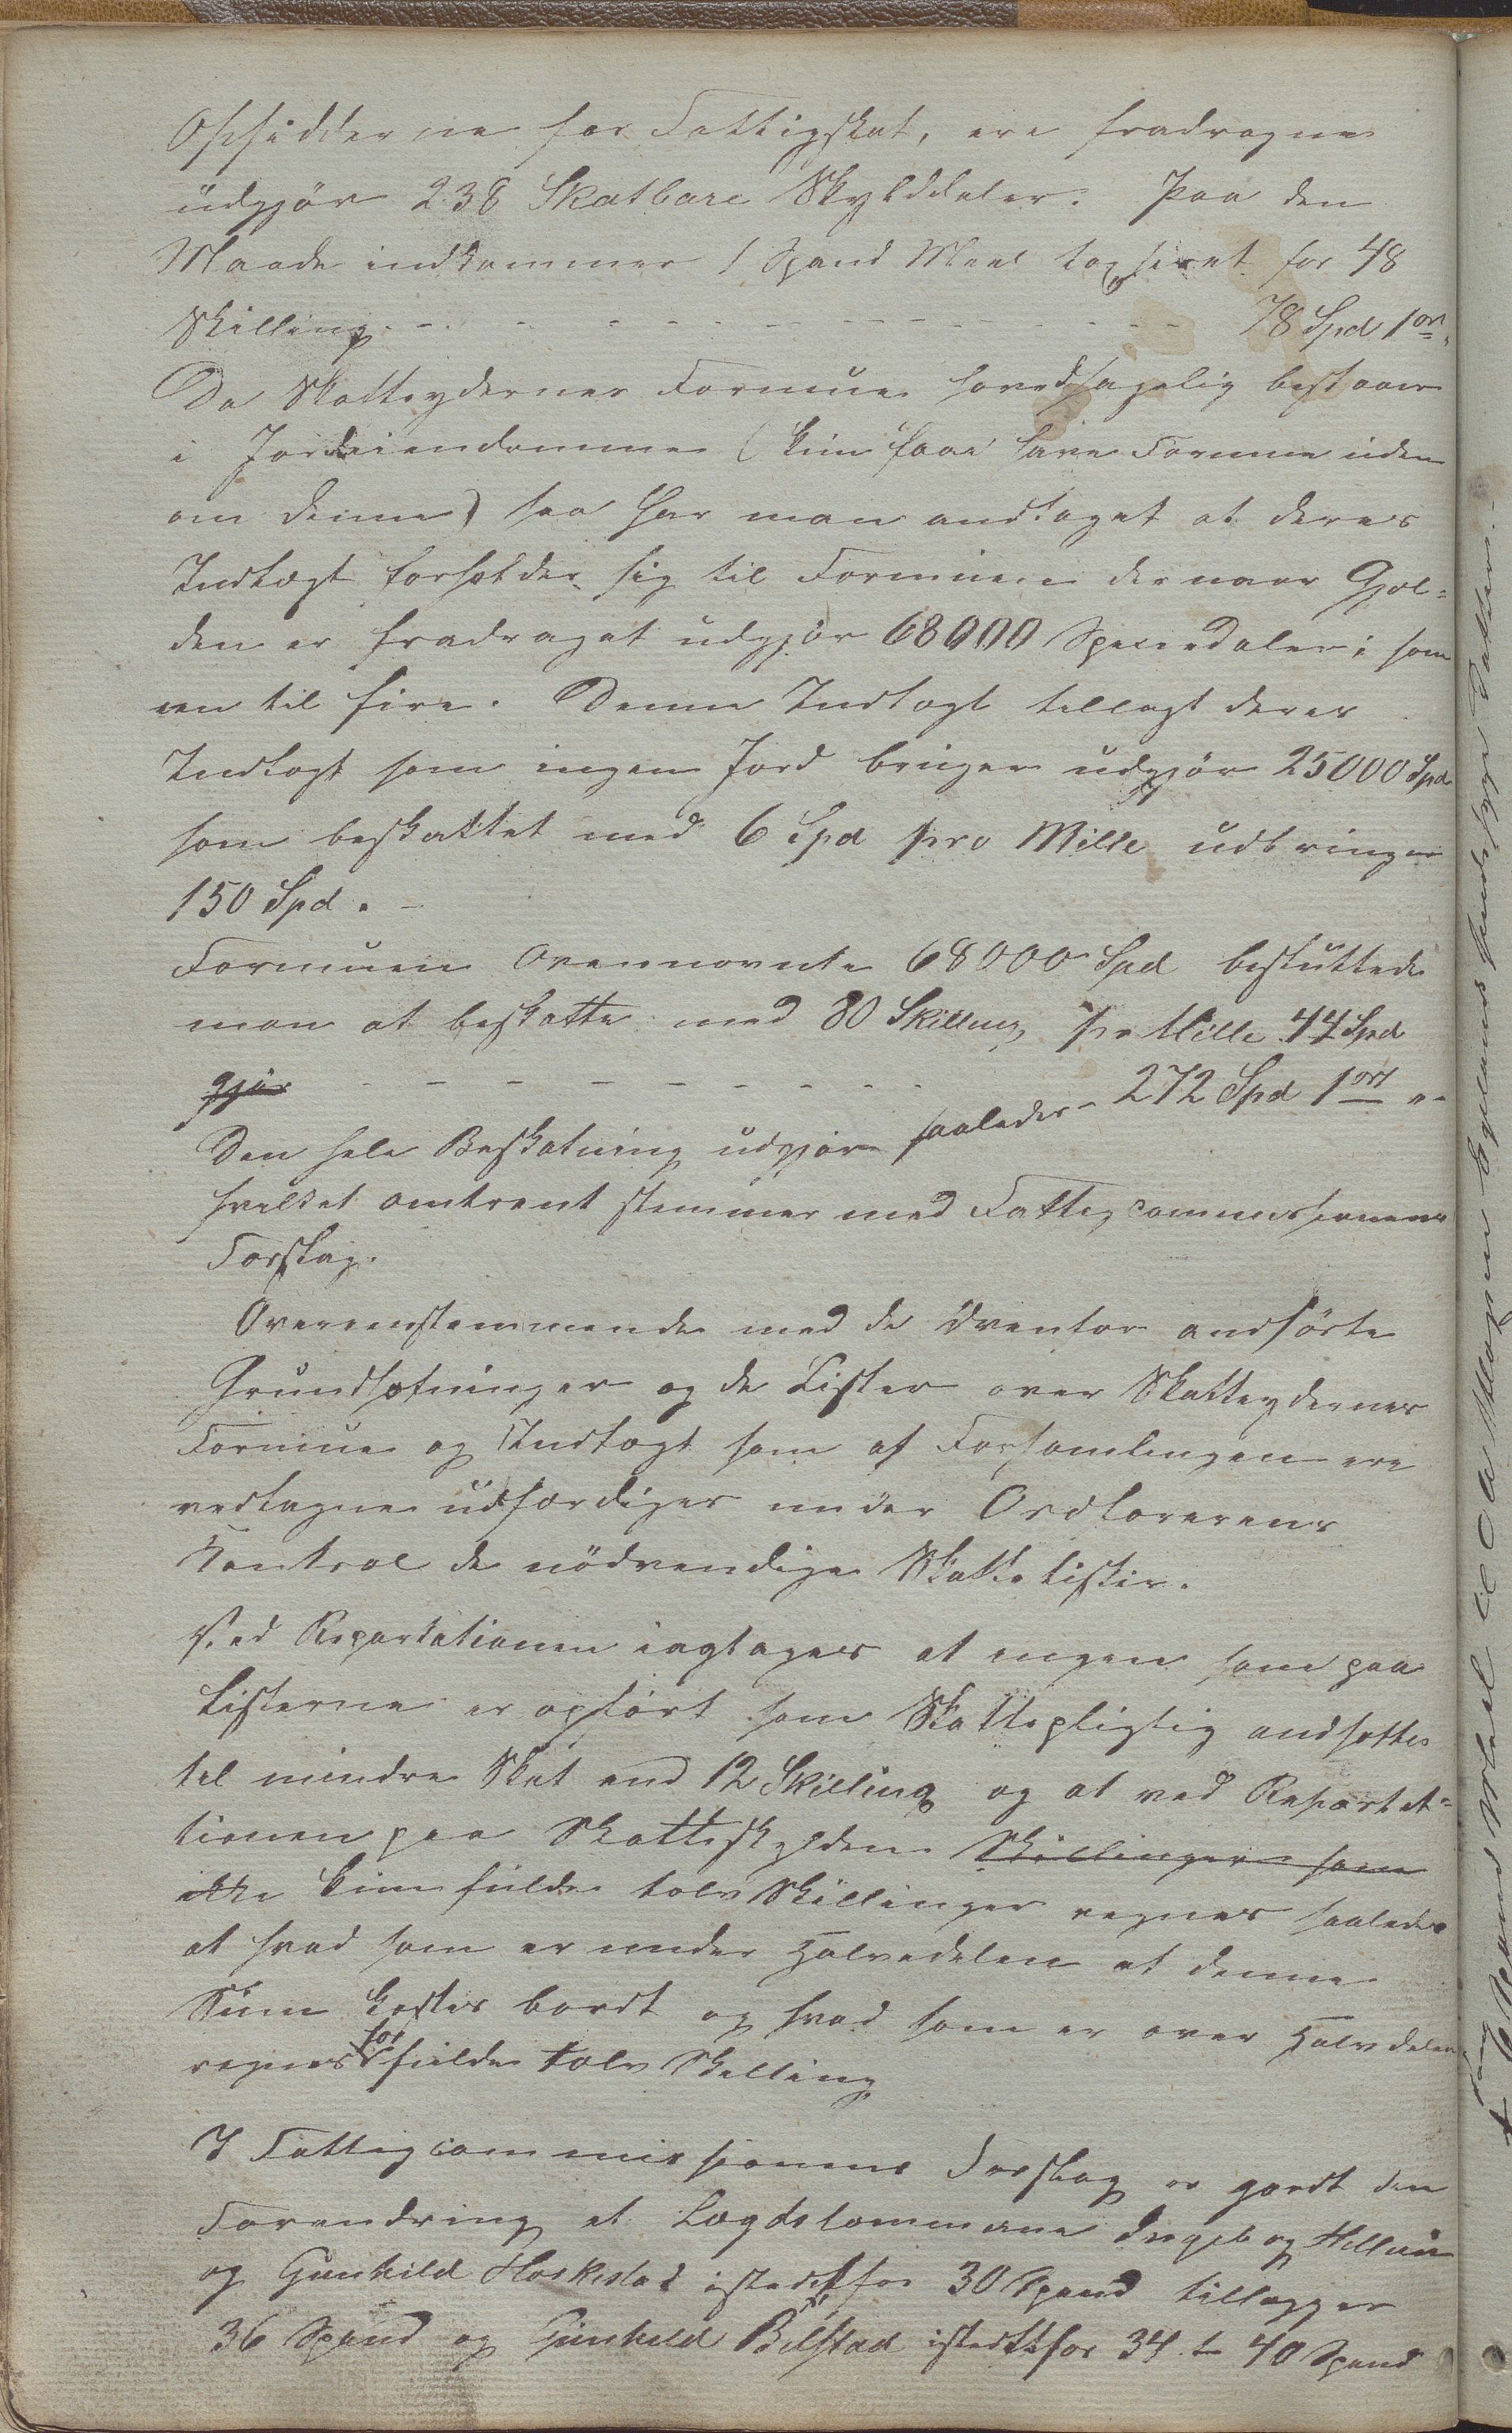 Opsidderne for Fattigskat, ere fradragne
udgjör 238 Skatbare Skylddaler. Paa den
Maade indkommer 1 Spand Meel taxseret for 48
Skilling - - - - - - - - - - - 78 Spd 1 ort "
Da Skatteydernes Formue hovedsagelig bestaaer
i Jordeiendomme (kun faae have Formue uden
om denne) saa har man andtaget at deres
Indtægt forholder sig til Formuen der naar Gjel-
den er fradraget udgjör 68000 Speciedaler; som
een til fire. Denne Indtægt tillagt deres
Indtægt som ingen Jord bruger udgjör 25000 Spd
som beskattet med 6 Spd pro Mille udbringer
150 Spd. -
Formuen Ovennævnte 68000 Spd besluttede
man at beskatte med 80 Skilling pr Mille 44 Spd
gjör - - - - - - - -
Den hele Beskatning udgjör saaledes - 272 Spd 1 ort "
hvilket omtrent stemmer med Fattigcommissionens
Forslag.
Overeenstemmende med de ovenfor andförte
Grundsætninger og de Lister over Skatteydernes
Formue og Indtægt som af Forsamlingen ere
vedtagne udfærdiges under Ordförerens
Kontrol de nödvendige Skattelister.
Ved Repartationen iagtages at ingen som paa
Listerne er opfört som Skattepligtig andsættes
til mindre Skat end 12 Skilling og at ved Repartat-
tionen paa Skatteskylden Skillinger som
ikke kun fulde tolv Skillinger regnes saaledes
at hvad som er under Halvedelen af denne
Sum kastes bordt og hvad som er over Halvdelen
regnes for fulde tolv Skilling
I Fattigcommissionens Forslag er gjordt den
Forandring at Lægdslemmerne Ingeb og Hellem
og Gunhild Haskestad istedetfor 30 Spand tillægges
36 Spand og Gunhild Bilstad istedetfor 34 til 40 Spand